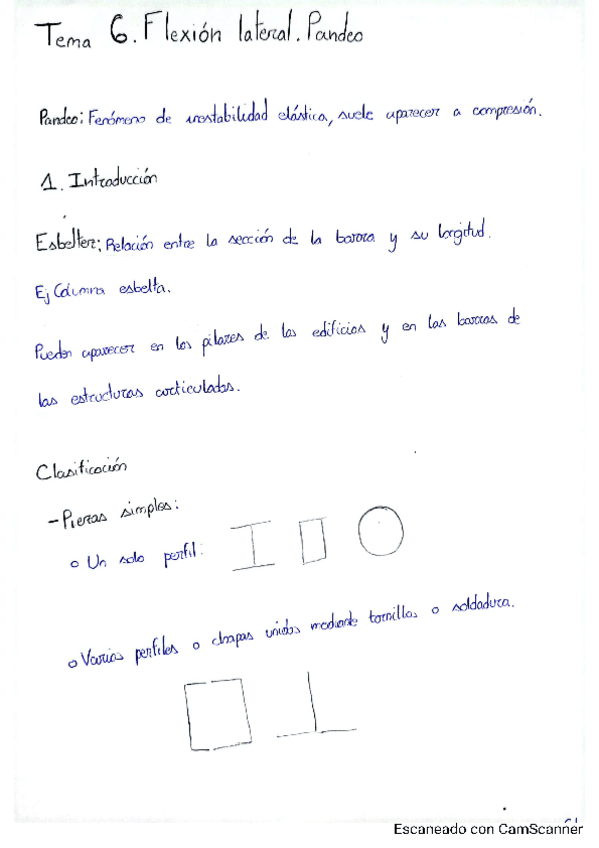 Tema 6. Flexión lateral. Pandeo
Pandeo: Fenómeno de inestabilidad elástica, suele aparecer a compresión.
1. Introducción
Esbeltez: Relación entre la sección de la barra y su longitud.
Ej Columna esbelta.
Pueden aparecer en los pilares de los edificios y en las barras de
las estructuras articuladas.
Clasificación
- Piezas simples:
o Un solo perfil:
o Varios perfiles o chapas unidos mediante tornillos o soldadura.
Escaneado con CamScanner